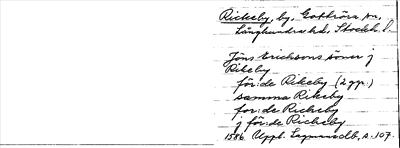 Rickeby, by, Gottröra sn,
Långhundra hd, Stockh. l.
Jöns Erichsons söner j
Rikeby
för:de Rikeby (2 gr.)
samma Rikeby
for:de Rickeby
j för:de Rickeby
1586 Uppl. Lagmansdb, s. 107.